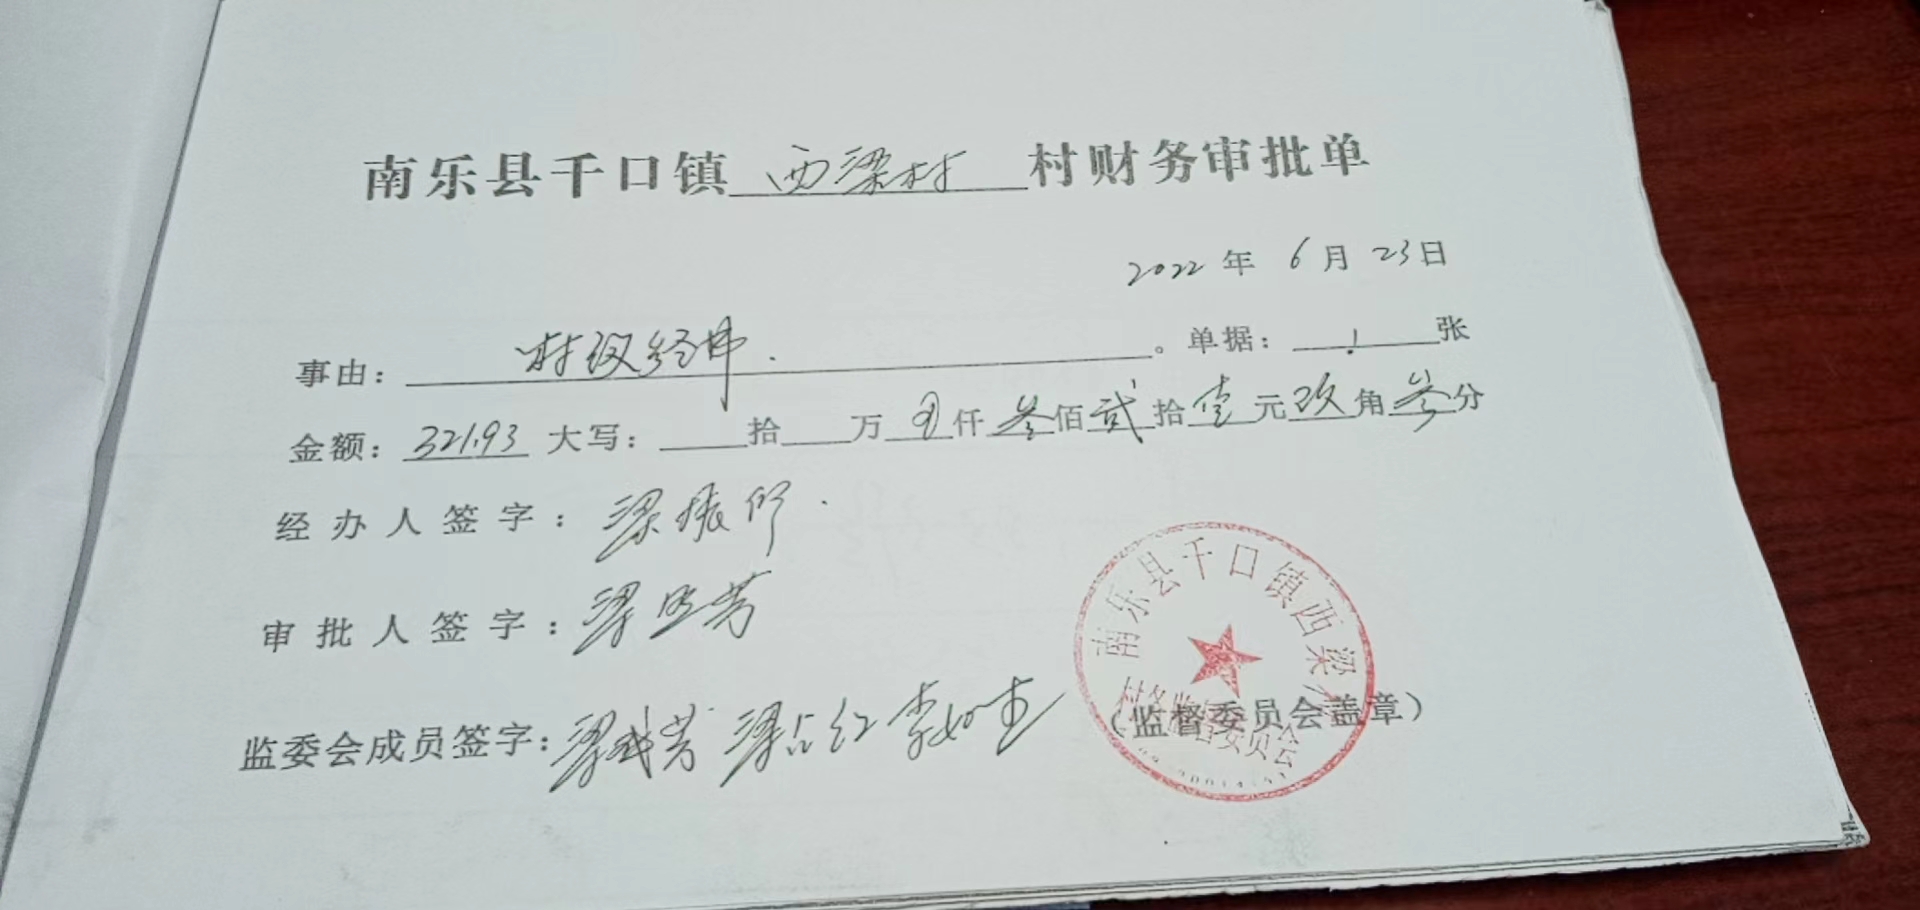 南乐县千口镇 西梁村 村财务审批单
2022 年 6 月 23 日
事由: 村 。单据: 1 张
金额: 321.93 大写: 拾 万 仟 叁 佰 贰 拾 壹 元 玖 角 叁 分
经办人签字: 梁振
审批人签字: 梁 芳
监委会成员签字: 梁 芳 梁占红 李
(监督委员会盖章)
南乐县千口镇西梁村
村务监督委员会